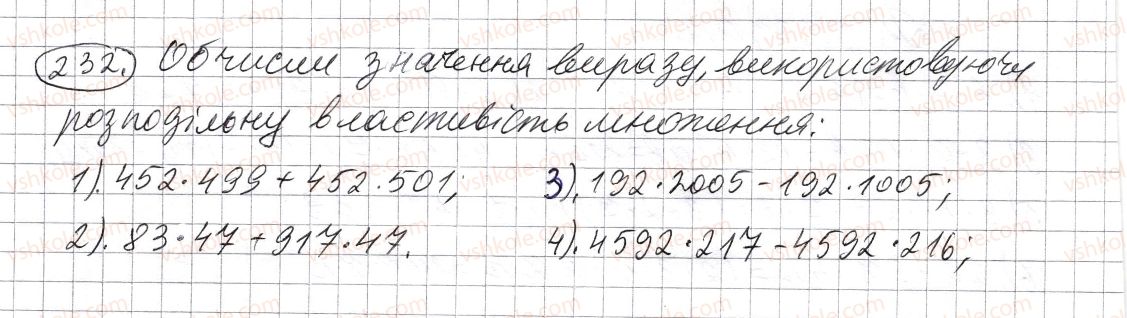 232. Обчисли значення виразу, використовуючи
розподільну властивість множення:
1). 452·499 + 452·501; 3). 192·2005 - 192·1005;
2). 83·47 + 917·47. 4). 4592·217 - 4592·216;